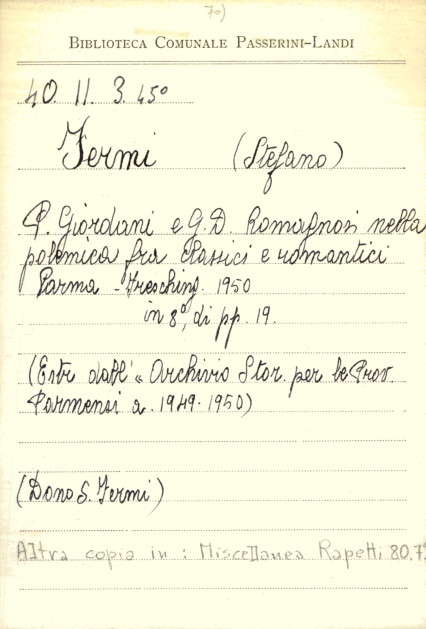 70)
BIBLIOTECA COMUNALE PASSERINI-LANDI
40. 11. 3. 45º
Fermi (Stefano)
P. Giordani e G. D. Romagnosi nella
polemica fra classici e romantici
Parma - Fresching. 1950
in 8º, di pp. 19.
(Estr dall' « Archivio Stor. per le Prov
Parmensi a. 1949-1950)
(Dono S. Fermi)
Altra copia in : Miscellanea Rapetti 80.7